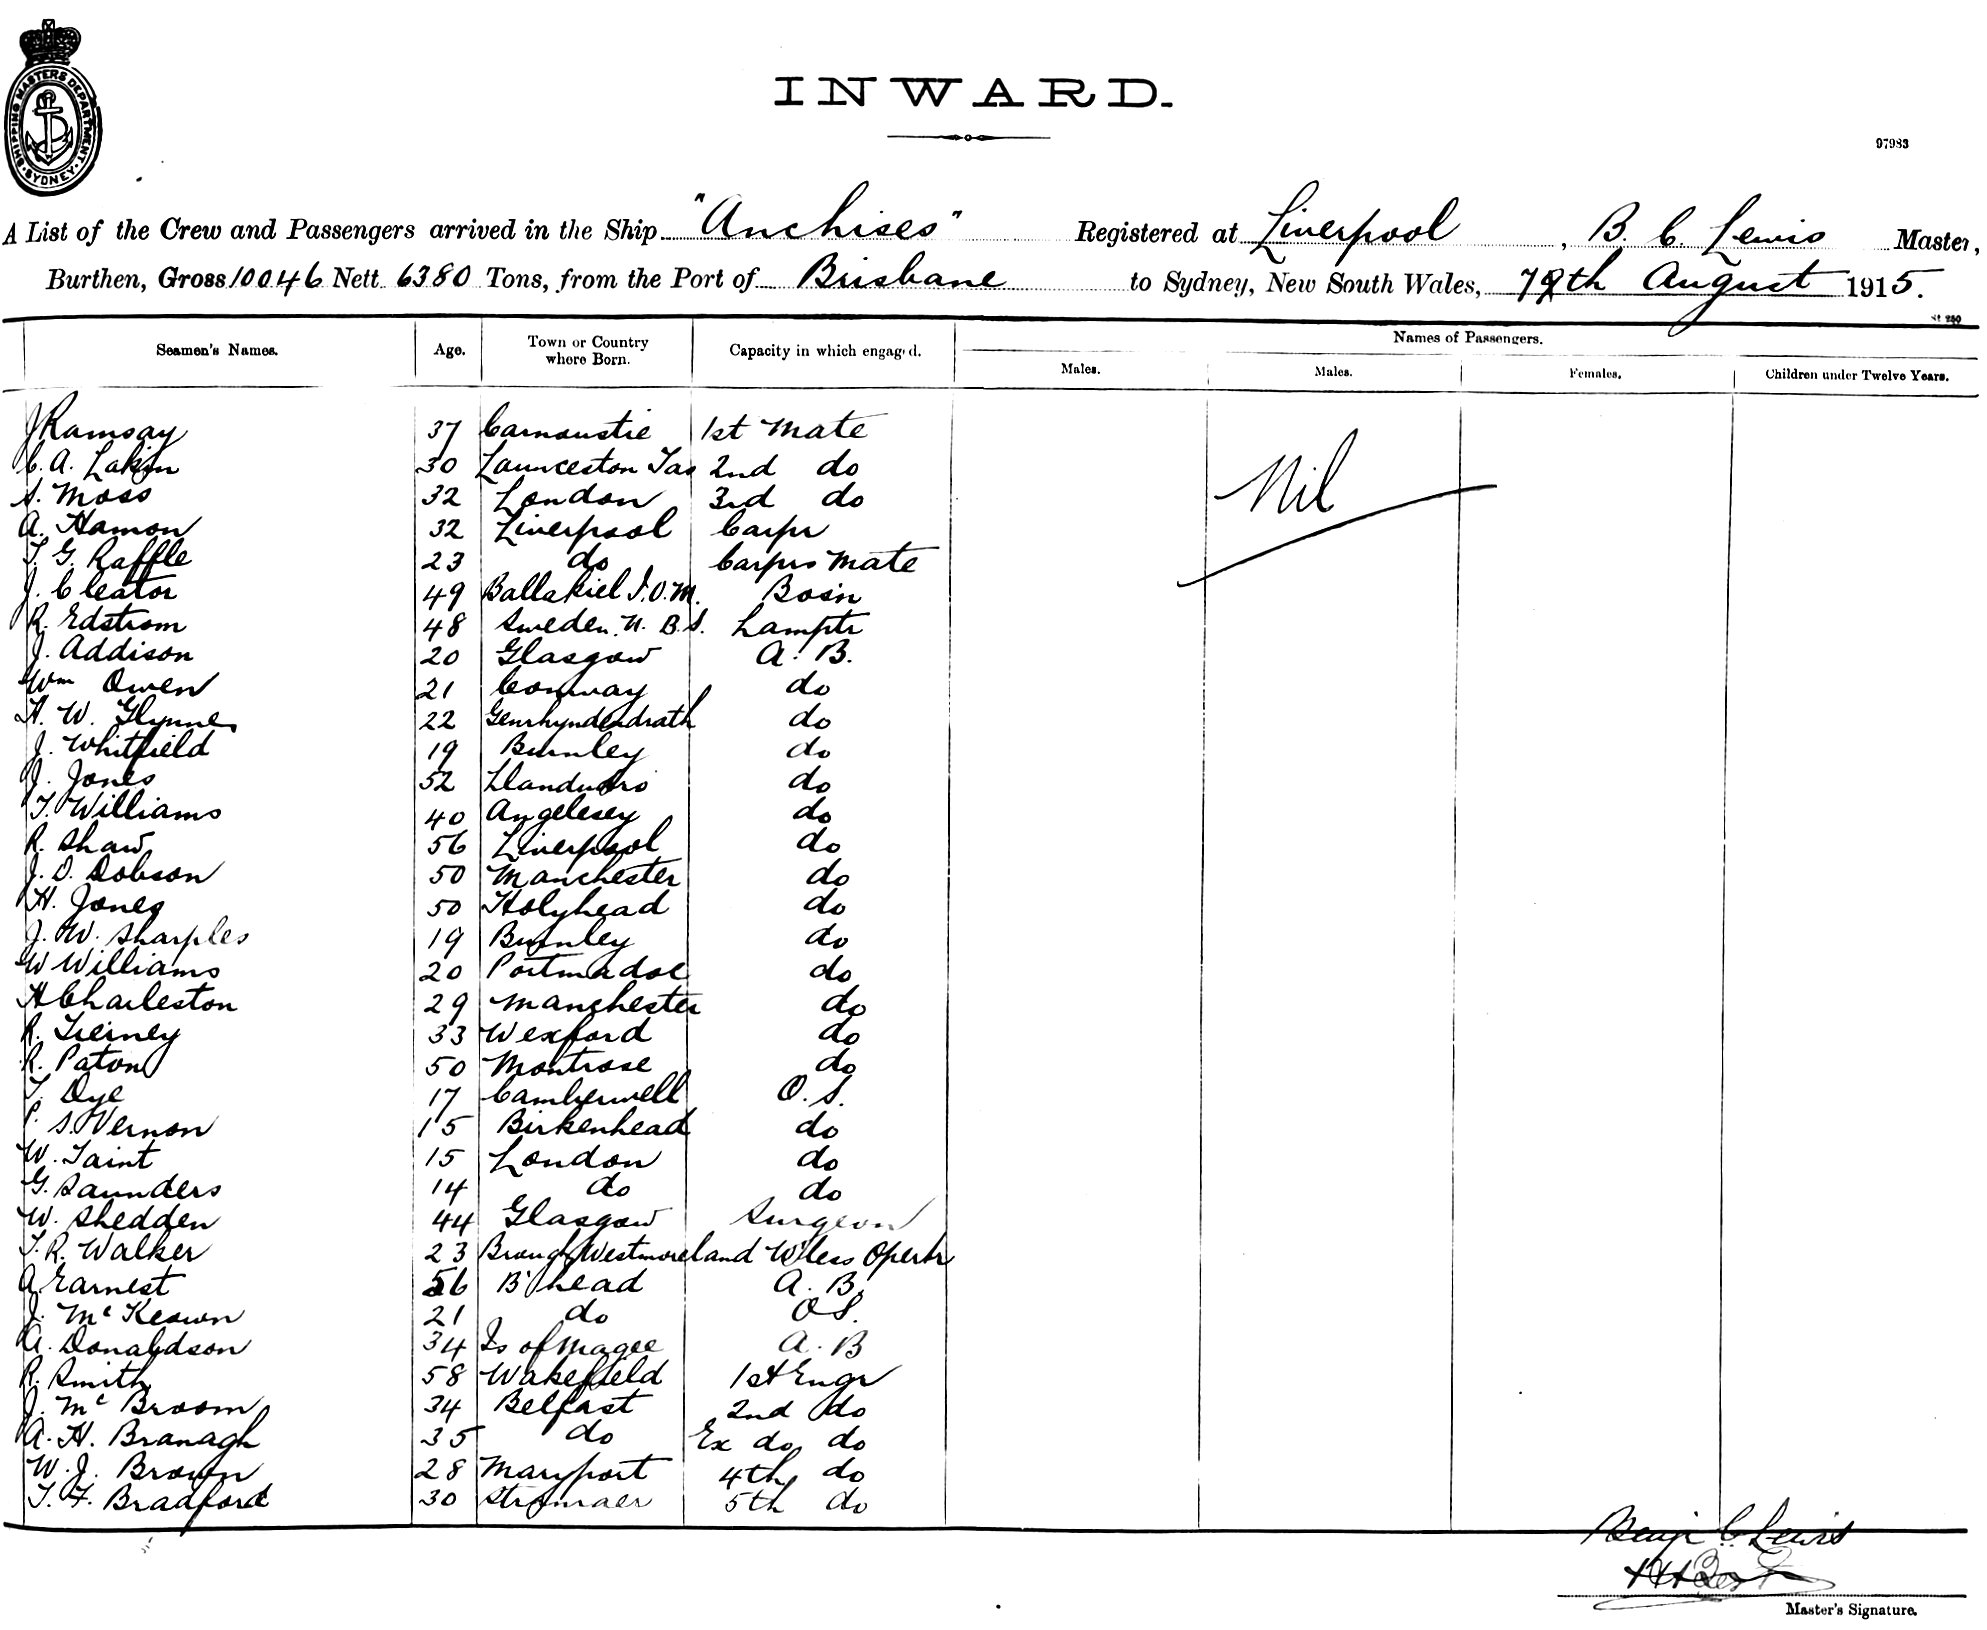 SHIPPING MASTERS DEPARTMENT. SYDNEY.
INWARD.
97983
A List of the Crew and Passengers arrived in the Ship "Anchises" Registered at Liverpool, B. C. Lewis Master,
Burthen, Gross 10046 Nett 6380 Tons, from the Port of Brisbane to Sydney, New South Wales, August 1915.
St 250
Seamen's Names. Age. Town or Country where Born. Capacity in which engaged. Names of Passengers.
Males. Males. Females. Children under Twelve Years.
Nil
J Ramsay 37 Carnoustie 1st Mate
C. A. Lakin 30 Launceston Tas 2nd do
S. Moss 32 London 3rd do
A. Hamon 32 Liverpool Carpr
T. G. Raffle 23 do Carprs Mate
J. Cleator 49 Ballakiel I.O.M. Bosn
R. Edstrom 48 Sweden. N. B.S. Lamptr
J. Addison 20 Glasgow A. B.
Wm Owen 21 Conway do
H. W. Glynne 22 do
J. Whitfield 19 Burnley do
J. Jones 52 do
T. Williams 40 Angelesey do
R. Shaw 56 Liverpool do
J. D. Dobson 50 Manchester do
H. Jones 50 Holyhead do
J. W. Sharples 19 Burnley do
W Williams 20 Portmadoc do
H Charleston 29 Manchester do
R. Tierney 33 Wexford do
R. Paton 50 Montrose do
T. Dye 17 Camberwell O. S.
P. S. Vernon 15 Birkenhead do
W. Taint 15 London do
G. Saunders 14 do do
W. Shedden 44 Glasgow Surgeon
T. R. Walker 23 Brough Westmoreland W'less Opertr
A Earnest 56 B'head A. B.
J. McKeown 21 do O S.
A. Donaldson 34 Is of Magee A. B
R. Smith 58 Wakefield 1st Engr
J. Mc Broom 34 Belfast 2nd do
A. H. Branagh 35 do Ex do do
W. J. Brown 28 Maryport 4th do
T. F. Bradford 30 Stranraer 5th do
Benj C. Lewis
Master's Signature.